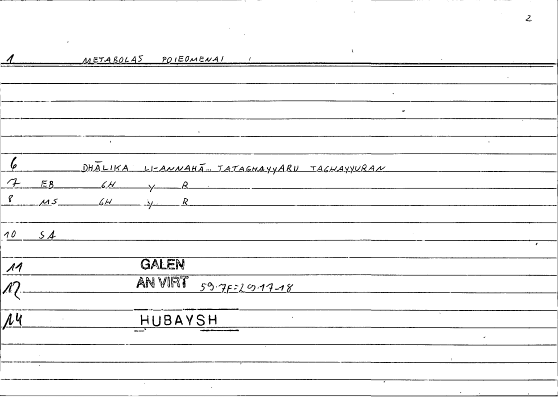 2
1 METABOLAS POIEOMENAI
6 DHĀLIKA LI-ANNAHĀ.. TATAGHAYYARU TAGHAYYURAN
7 EB GH Y R
8 MS GH Y R
10 SA
11 GALEN
12 AN VIRT 59.7F=20.17-18
14 HUBAYSH